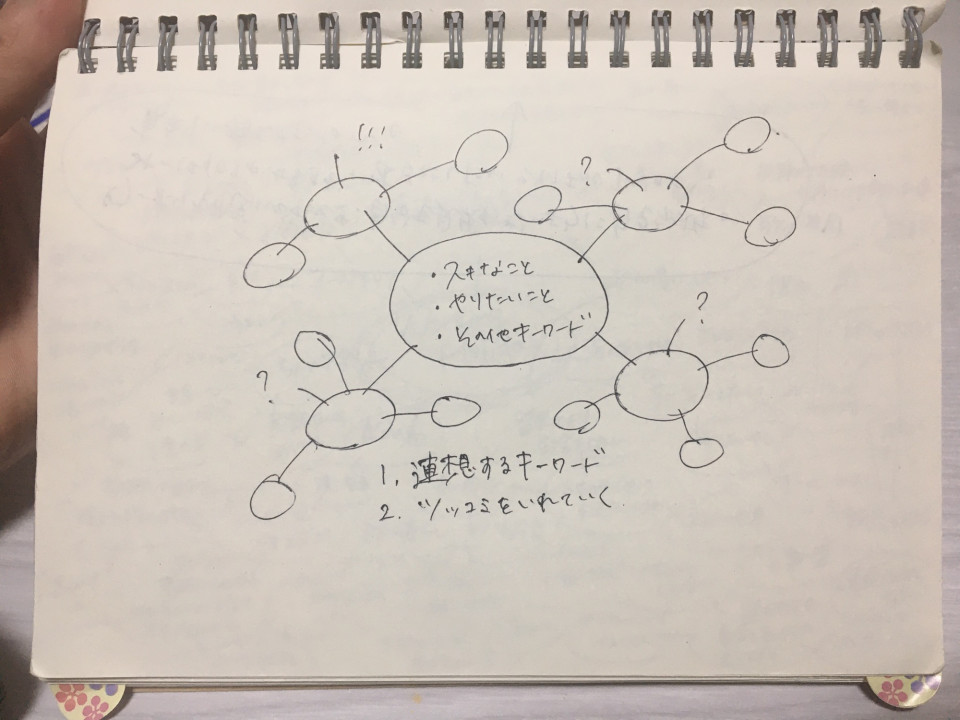 !!!
?
・スキなこと
・やりたいこと
・その他キーワード
?
?
1. 連想するキーワード
2. ツッコミをいれていく